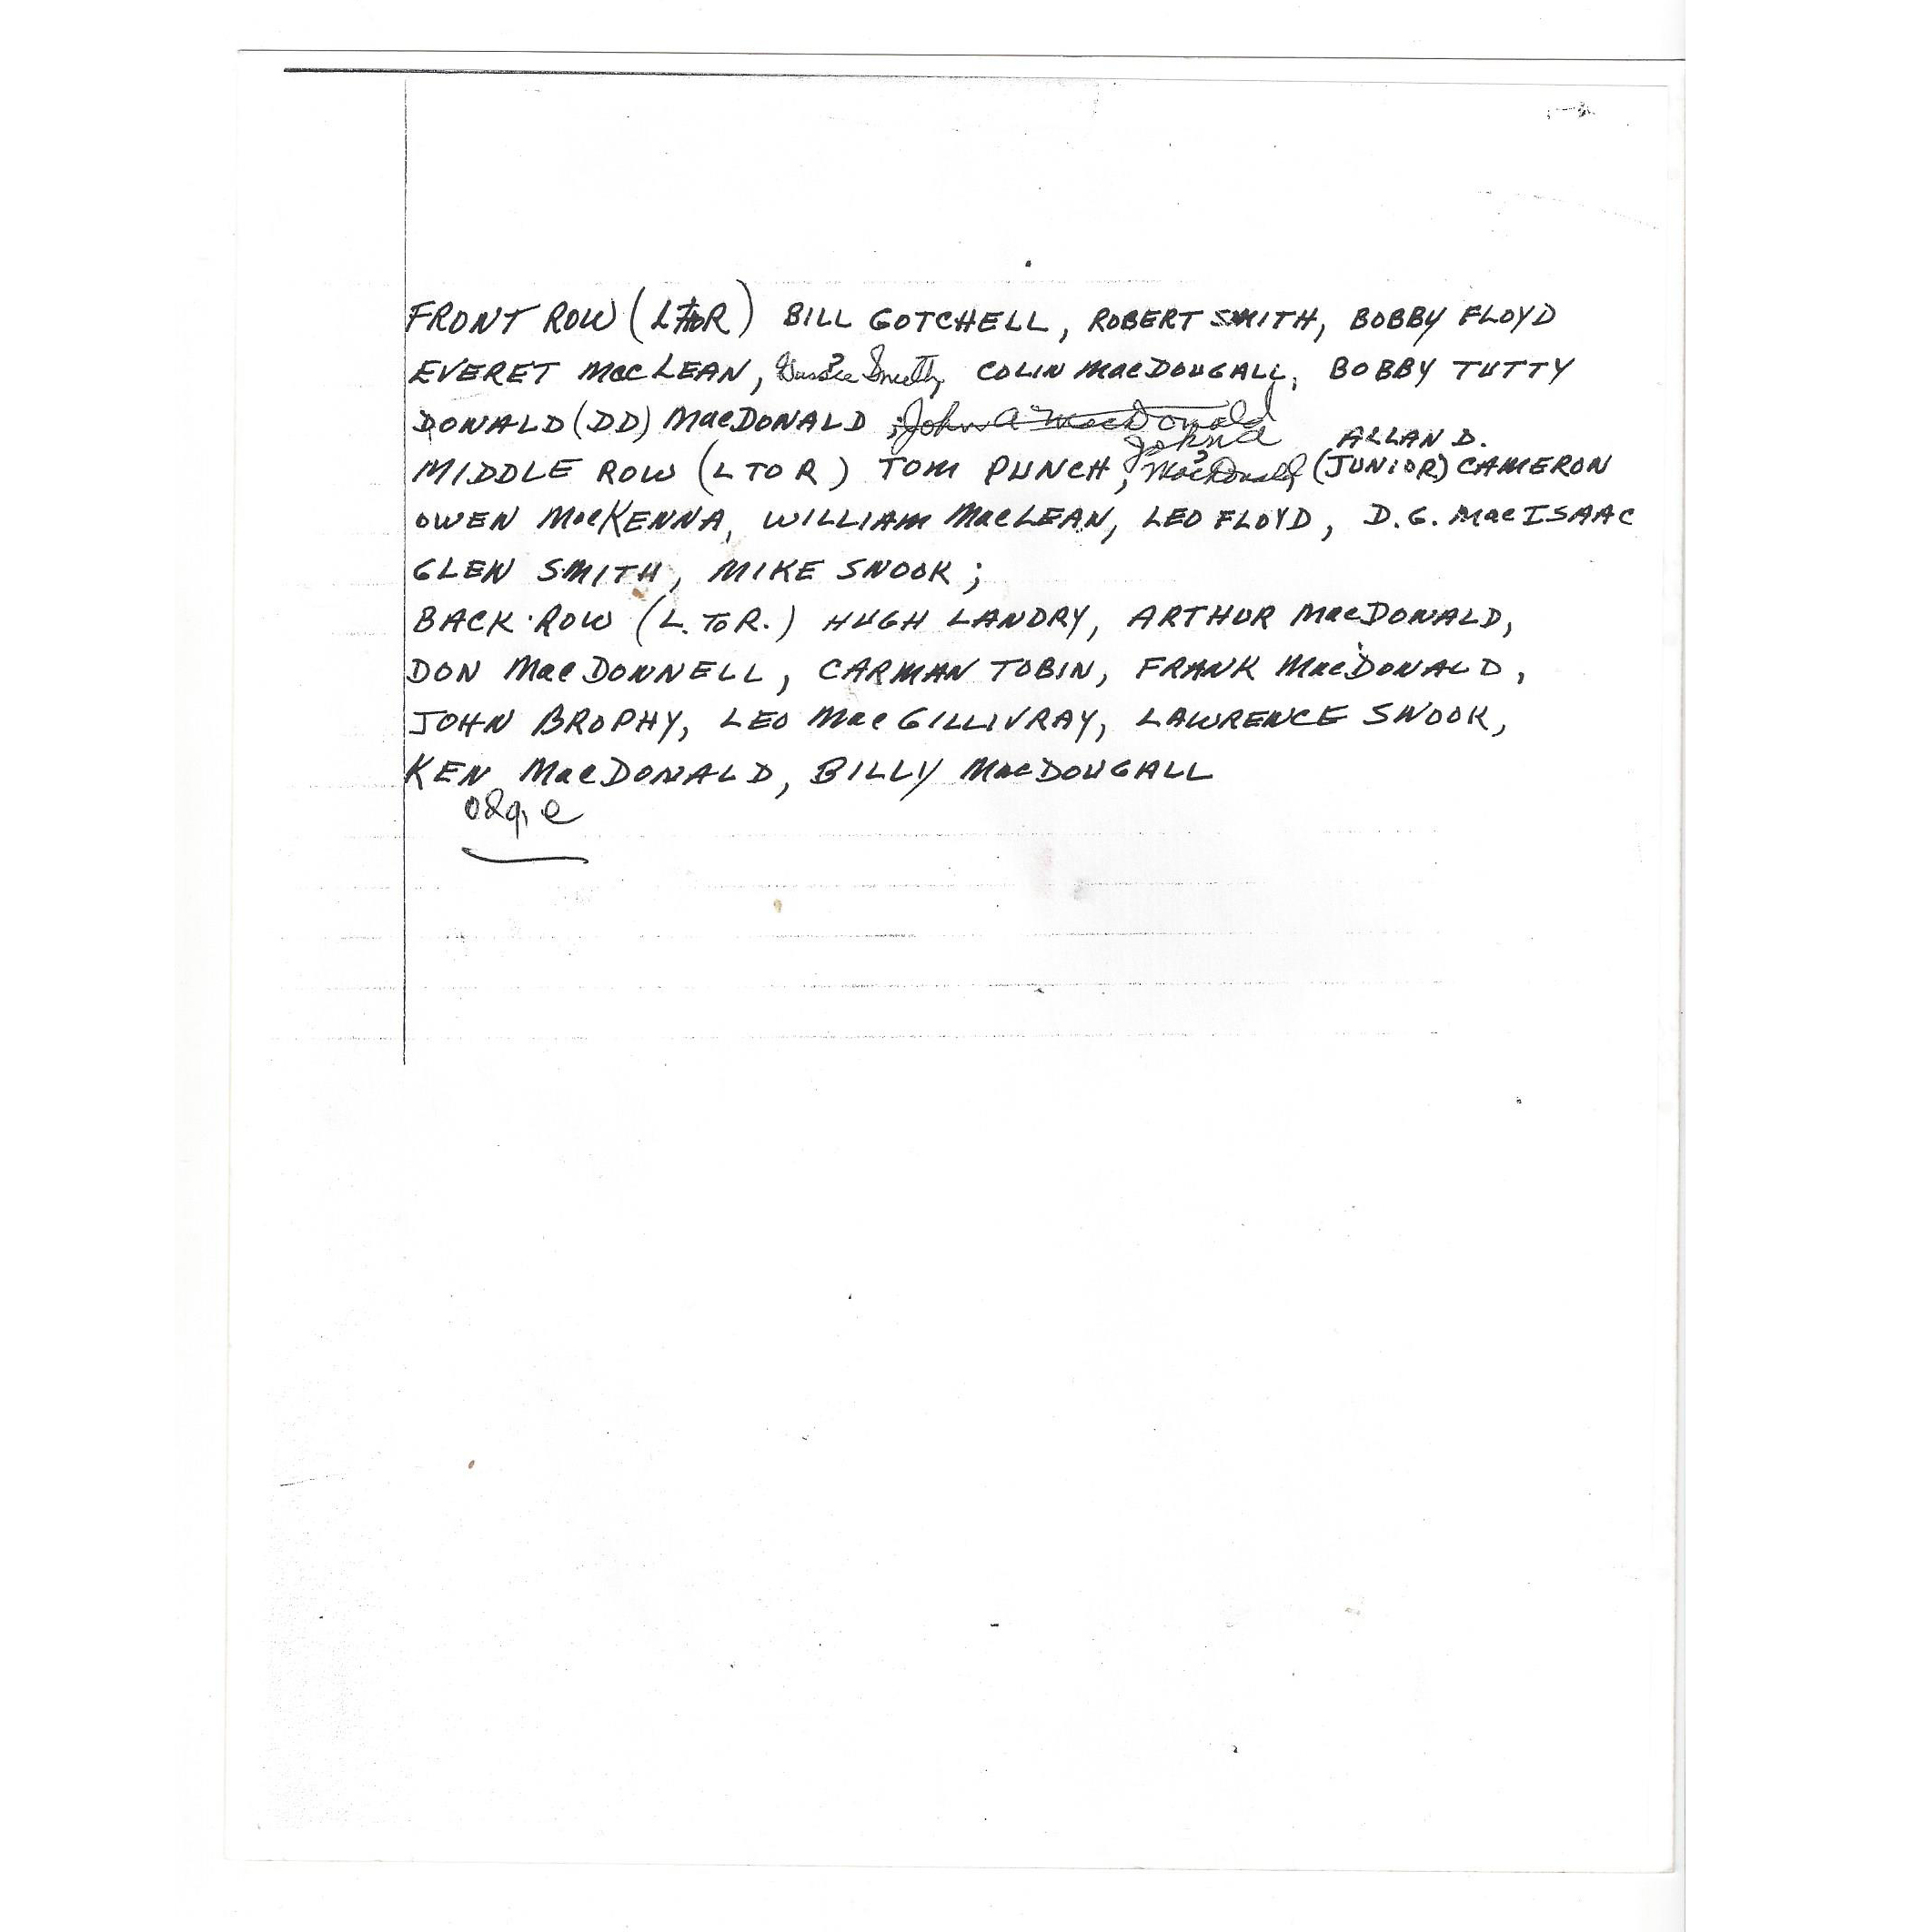 FRONT ROW (L TO R) BILL GOTCHELL, ROBERT SMITH, BOBBY FLOYD
EVERET MacLEAN, Smith, COLIN MacDOUGALL, BOBBY TUTTY
DONALD (DD) MacDONALD ; John A MacDonald
John A ALLAN D.
MIDDLE ROW (L TO R) TOM PUNCH, MacDonald (JUNIOR) CAMERON
OWEN MacKENNA, WILLIAM MacLEAN, LEO FLOYD, D.G. MacISAAC
GLEN SMITH, MIKE SNOOK;
BACK ROW (L. TO R.) HUGH LANDRY, ARTHUR MacDONALD,
DON MacDONNELL, CARMAN TOBIN, FRANK MacDONALD,
JOHN BROPHY, LEO MacGILLIVRAY, LAWRENCE SNOOK,
KEN MacDONALD, BILLY MacDOUGALL